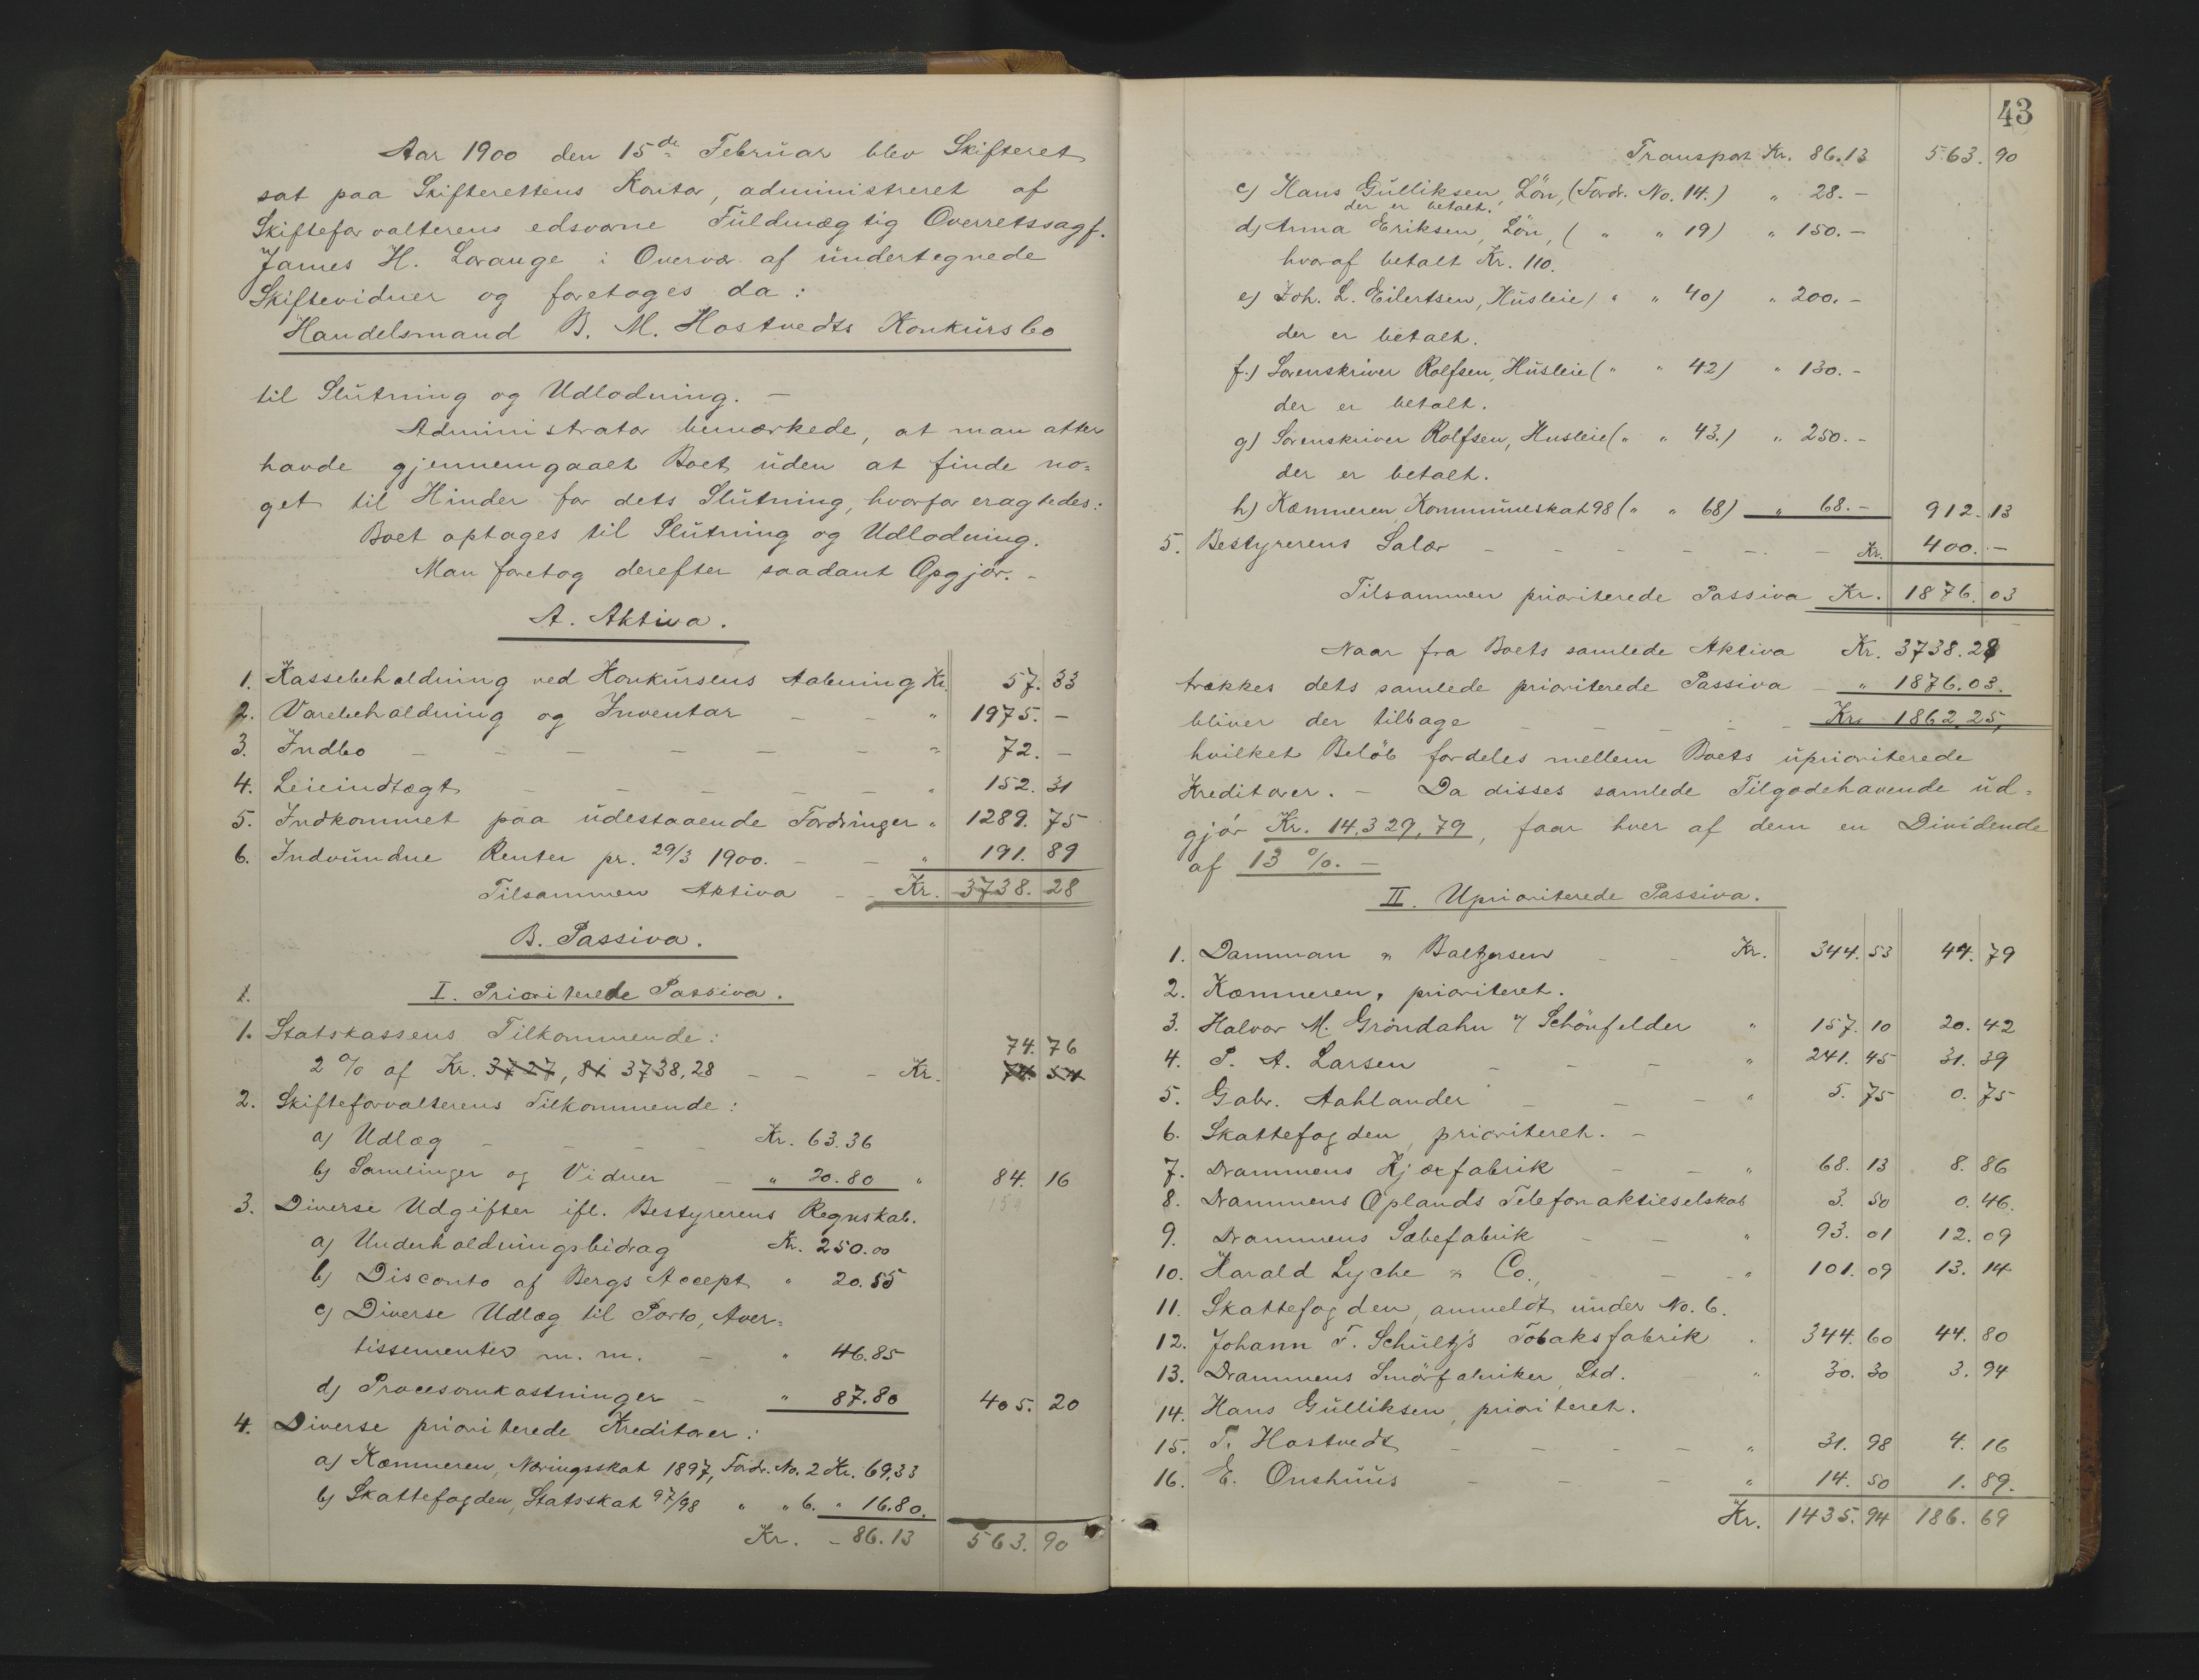 Aar 1900 den 15de Februar blev Skifteret
sat paa Skifterettens Kontor, administreret af
Skifteforvalterens edsvorne Fuldmægtig Overretssagf.
James H. Lorange i Overvær af undertegnede
Skiftevidner og foretoges da:
Handelsmand B. M. Hostvedts Konkursbo
til Slutning og Udlodning. –
Administrator bemærkede, at man atter
havde gjennemgaaet Boet uden at finde no=
get til Hinder for dets Slutning, hvorfor eragtedes:
Boet optages til Slutning og Udlodning.
Man foretog derefter saadant Opgjør. –
A. Aktiva.
1. Kassebeholdning ved Konkursens Aabning Kr. 57. 33
2. Varebeholdning og Inventar – – " 1975. –
3. Indbo – – – – – – " 72. –
4. Leieindtægt – – – – – " 152. 31
5. Indkommet paa udestaaende Fordringer " 1289. 75
6. Indvundne Renter pr. 29/3 1900. – – " 191. 89
Tilsammen Aktiva – – Kr. 3738. 28
B. Passiva.
1. I. Prioriterede Passiva.
1. Statskassens Tilkommende:
74. 76
2 % af Kr. 3727, 81 3738,28 – – – Kr. 74. 54
2. Skifteforvalterens Tilkommende:
a) Udlæg – – – – Kr. 63.36
b) Samlinger og Vidner – " 20.80 " 84. 16
3. Diverse Udgifter ifl. Bestyrerens Regnskab.
a) Underholdningsbidrag Kr. 250.00
b) Disconto af Bergs Accept " 20.55
c) Diverse Udlæg til Porto, Aver=
tissementer m. m. – " 46.85
d) Procesomkostninger – " 87.80 405. 20
4. Diverse prioriterede Kreditorer:
a) Kæmneren, Næringsskat 1897, Fordr. No. 2 Kr. 69.33
b) Skattefogden, Statsskat 97/98 " " 6. " 16.80.
Kr. – 86.13 563. 90
43
Transport Kr. 86.13 563. 90
c) Hans Gulliksen, Løn, (Fordr. No. 14.) " 28. –
der er betalt.
d) Anna Eriksen, Løn, ( " " 19) " 150. –
hvoraf betalt Kr. 110.
e) Joh. L. Eilertsen, Husleie ( " " 40) " 200. –
der er betalt.
f.) Sorenskriver Rolfsen, Husleie ( " " 42) " 130. –
der er betalt.
g) Sorenskriver Rolfsen, Husleie ( " " 43.) " 250. –
der er betalt.
h) Kæmneren Kommuneskat 98 ( " " 68) " 68. – 912. 13
5. Bestyrerens Salær – – – – – – Kr. 400. –
Tilsammen prioriterede Passiva Kr. 1876. 03
Naar fra Boets samlede Aktiva Kr. 3738.28
trækkes dets samlede prioriterede Passiva – " 1876.03.
bliver der tilbage – – – – Kr. 1862.25,
hvilket Beløb fordeles mellem Boets uprioriterede
Kreditorer. – Da disses samlede Tilgodehavende ud=
gjør Kr. 14,329,79, faar hver af dem en Dividende
af 13 %. –
II. Uprioriterede Passiva.
1. Damman & Baltzersen – – Kr. 344. 53 44. 79
2. Kæmneren, prioriteret.
3. Halvor M. Grøndahn & Schönfelder " 157. 10 20. 42
4. P. A. Larsen – – – " 241. 45 31. 39
5. Gabr. Aahlander – – – " 5. 75 0. 75
6. Skattefogden, prioriteret. –
7. Drammens Kjæxfabrik – – " 68. 13 8. 86
8. Drammens Oplands Telefonaktieselskab 3. 50 0. 46.
9. Drammens Sæbefabrik – – " 93. 01 12. 09
10. Harald Lyche & Co., – – – " 101. 09 13. 14
11. Skattefogden, anmeldt under No. 6.
12. Johann F. Schultz's Tobaksfabrik " 344. 60 44. 80
13. Drammens Smørfabriker, Ltd. – " 30. 30 3. 94
14. Hans Gulliksen, prioriteret.
15. T. Hostvedt – – – – " 31. 98 4. 16
16. E. Onshuus – – – " 14. 50 1. 89.
Kr. 1435. 94 186. 69